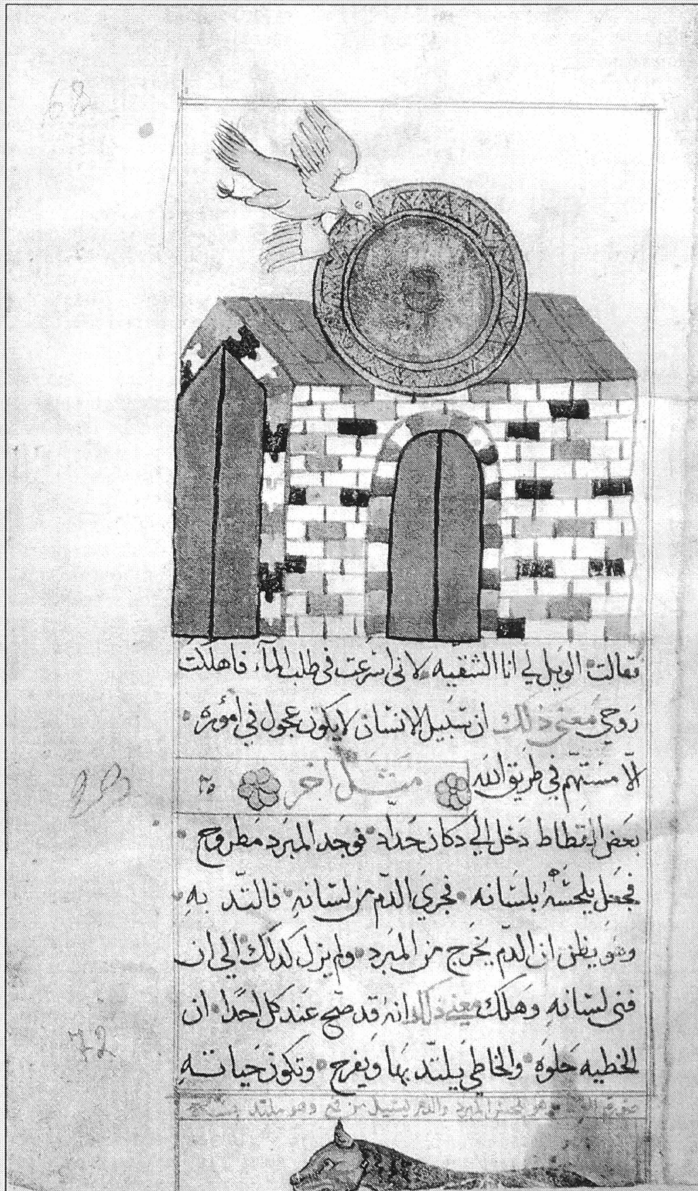 62
فقالت الويل لي انا الشقيه لاني اسرعت في طلب المآء، فاهلكت
روحي معني ذلك ان سبيل الانسان لا يكون عجول في اموره
الّا مستهم في طريق الله
مثل اخر ٣٥
بعض القطاط دخل الي دكان حدّاد فوجد المبرد مطروح
فجعل يلحسه بلسانه فجري الدّم من لسانه فالتد به
وهو يظن ان الدّم يخرج من المبرد ولم يزل كدلك الي ان
فني لسانه وهلك معني ذلك انه قد صح عند كل احدًا ان
الخطيه حلوه والخاطي يلتد بها ويفرح وتكون حياته
وهو يلحس المبرد والدم يسيل من فمه وهو ملتد
72